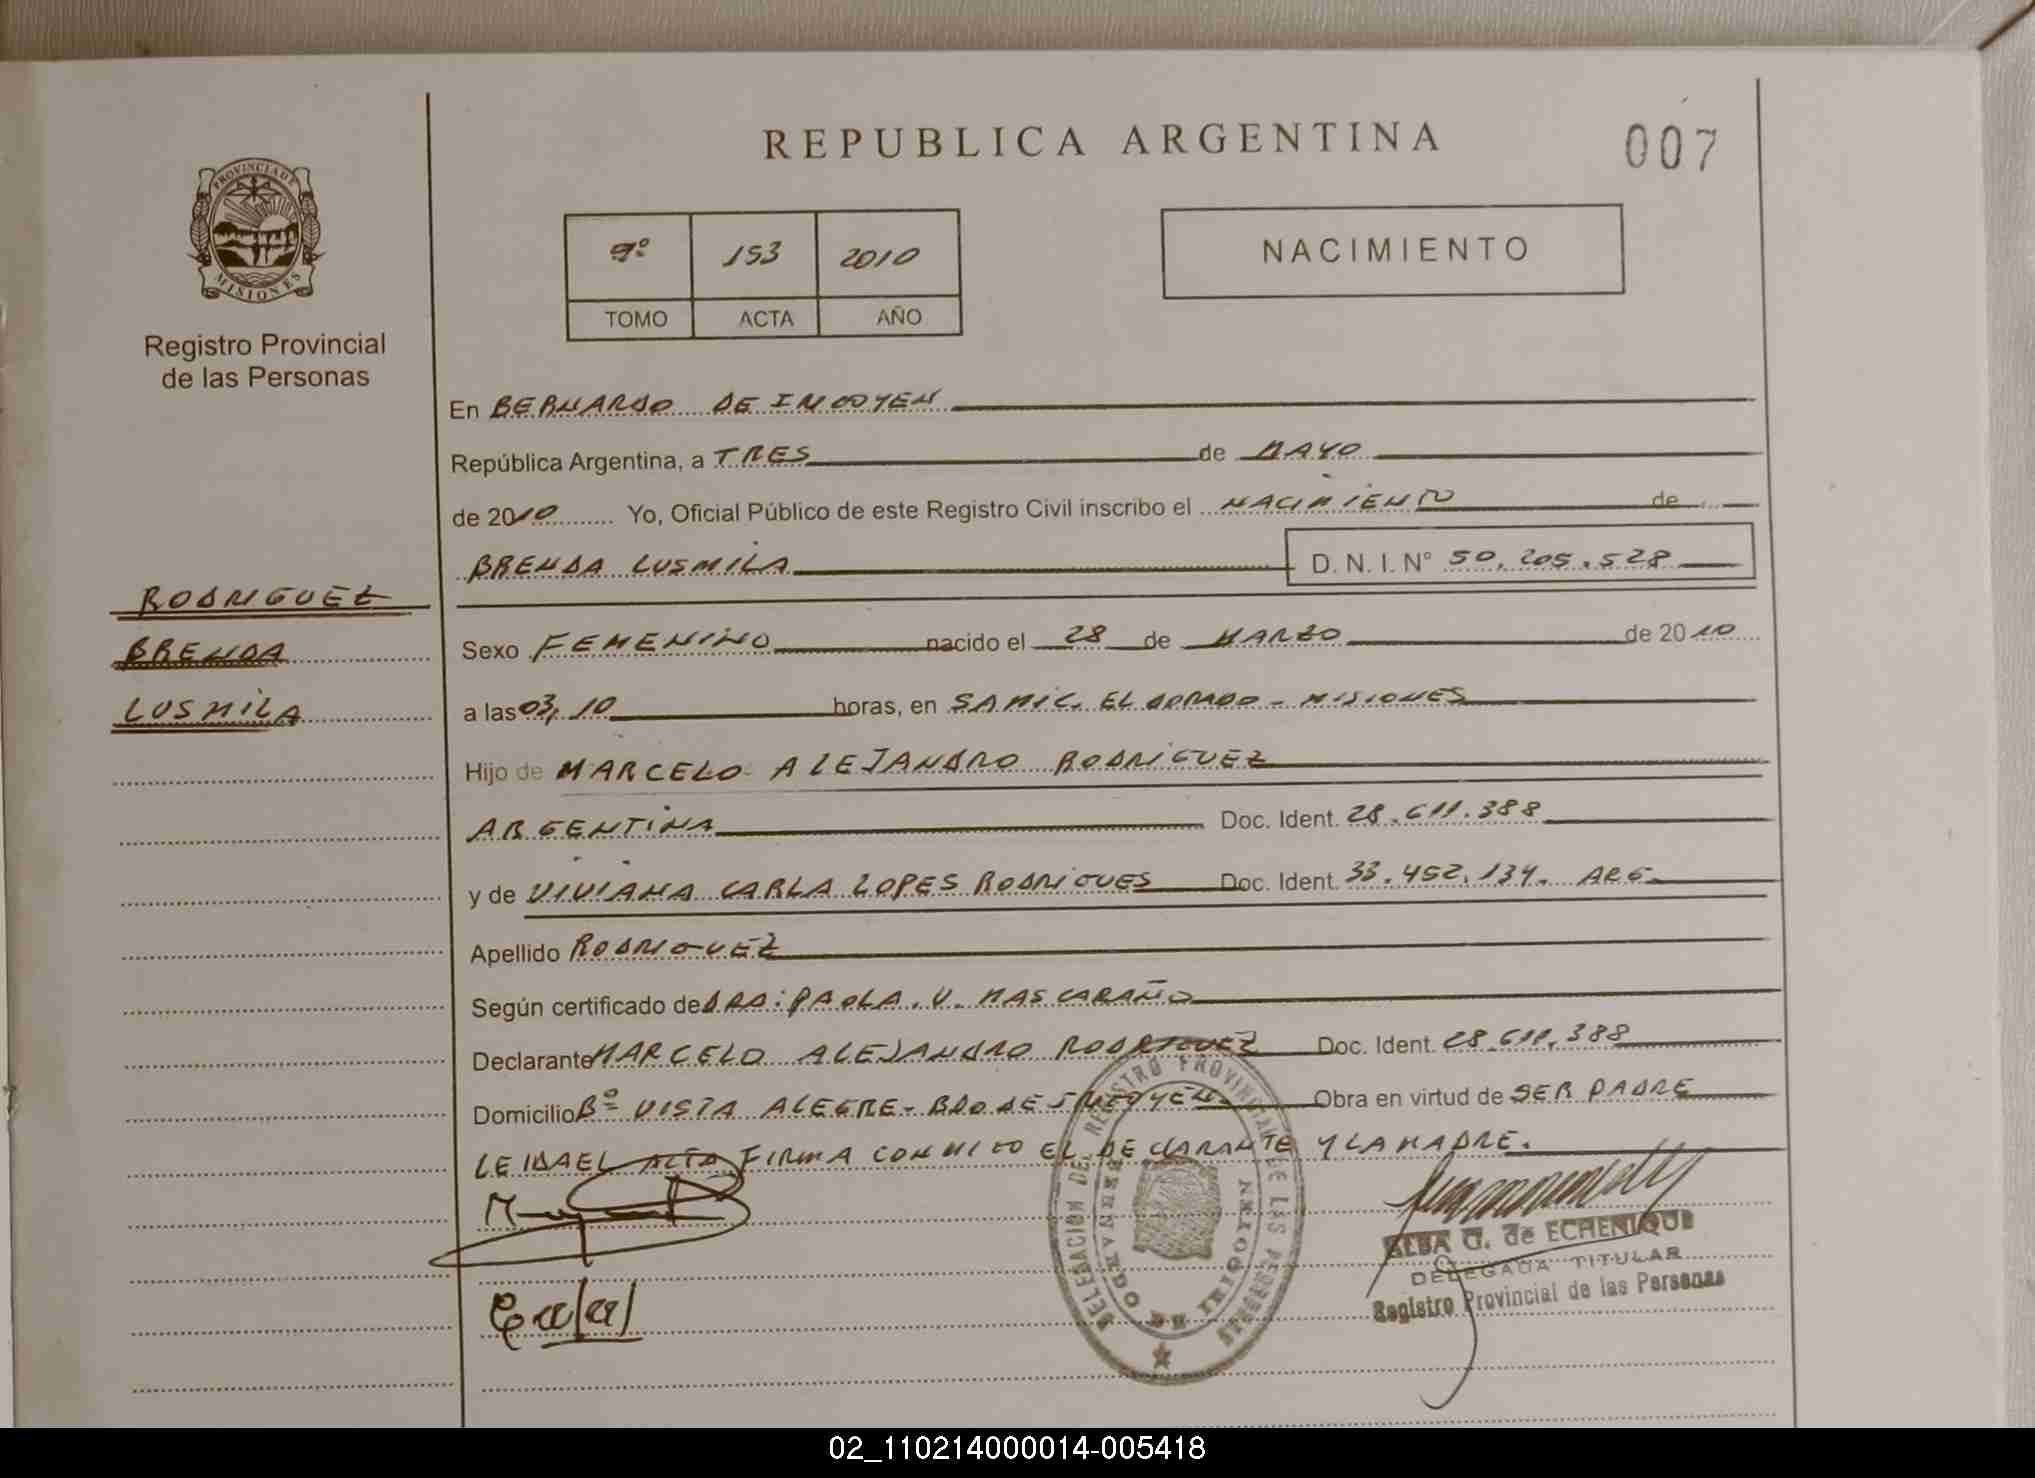 REPUBLICA ARGENTINA
007
PROVINCIA DE
MISIONES
Registro Provincial
de las Personas
9º 153 2010
TOMO ACTA AÑO
NACIMIENTO
En BERNARDO DE IRIGOYEN
República Argentina, a TRES de MAYO
de 2010 Yo, Oficial Público de este Registro Civil inscribo el NACIMIENTO de
BRENDA LUSMILA D. N. I. Nº 50.205.528
RODRIGUEZ
BRENDA
LUSMILA
Sexo FEMENINO nacido el 28 de MARZO de 2010
a las 03,10 horas, en SAMIC. ELDORADO - MISIONES
Hijo de MARCELO ALEJANDRO RODRIGUEZ
ARGENTINA Doc. Ident. 28.611.388
y de VIVIANA CARLA LOPES RODRIGUES Doc. Ident. 33.452.134. ARG.
Apellido RODRIGUEZ
Según certificado de DRA: PAOLA. V. MASCARAÑO
Declarante MARCELO ALEJANDRO RODRIGUEZ Doc. Ident. 28.611.388
Domicilio Bº VISTA ALEGRE - BDO DE IRIGOYEN. Obra en virtud de SER PADRE
LEIDA EL ACTA FIRMA CONMIGO EL DECLARANTE Y LA MADRE.
DELEGACIÓN DEL REGISTRO PROVINCIAL DE LAS PERSONAS
BERNARDO DE IRIGOYEN
ELBA G. de ECHENIQUE
DELEGADA TITULAR
Registro Provincial de las Personas
02_110214000014-005418